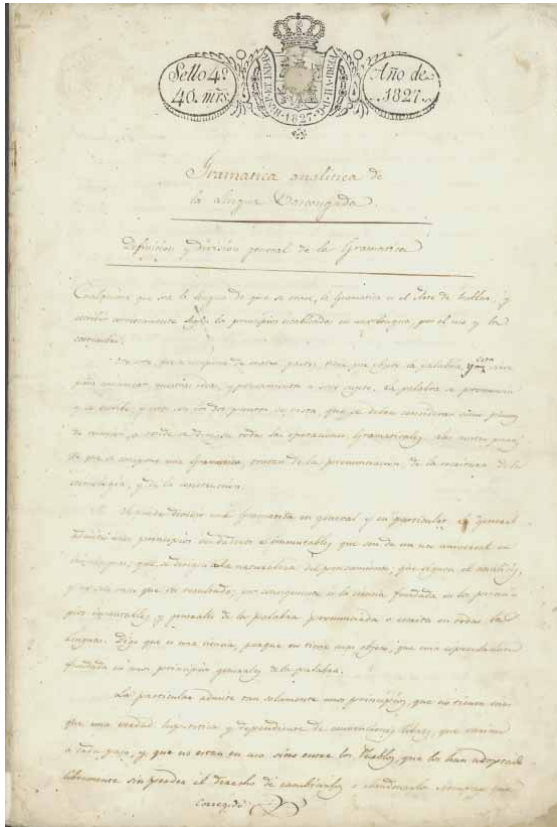 Sello 4º
40. mrs
HISP. ET IND. R. 1827
Año de
1827.
Gramatica analitica de
la Lengua Bascongada.
Definicion y division general de la Gramatica
Cualquiera que sea la lengua de que se trate, la Gramatica es el Arte de hablar, y
escribir correctamente segun los principios establecidos en una lengua, por el uso y los
partes, tiene por objeto la palabra, y con
para enunciar nuestras ideas, y pensamientos La palabra se pronuncia
y se escribe, y estos son los dos puntos de vista, que se deben considerar como
de reunion, a donde se dirigen todas las operaciones Gramaticales. Las cuatro partes
de que se compone una Gramatica, tratan de la pronunciacion, de la escritura de la
etimologia, y de la construccion.
Se puede dividir una Gramatica en general, y en particular. La general
admite unos principios inmutables que son de un uso universal en
que se dirigen a la naturaleza del pensamiento, que siguen el analisis,
y no son mas que su resultado; por consiguiente es la ciencia fundada en los princi-
pios inmutables y generales de la palabra pronunciada o escrita en todas las
lenguas. Digo que es una ciencia, porque no tiene mas objeto, que una especulacion
fundada en unos principios generales de la palabra.
La particular admite tan solamente unos principios, que no tienen mas
que una verdad hipotetica y dependiente de convenciones libres, que varian
a cada paso, y que no estan en uso sino entre los Pueblos, que los han adoptado
libremente sin perder el derecho de cambiarlos o abandonarlos siempre que
Corregido